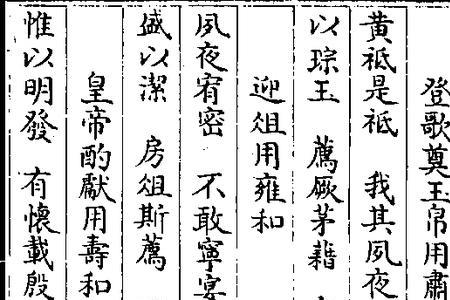 登歌奠玉帛用肅
黃祇是祗　我其夙夜
以琮玉　薦厥茅藉
迎俎用雍和
夙夜宥密　不敢寧宴
盛以潔　房俎斯薦
皇帝酌獻用壽和
惟以明發　有懷載殷